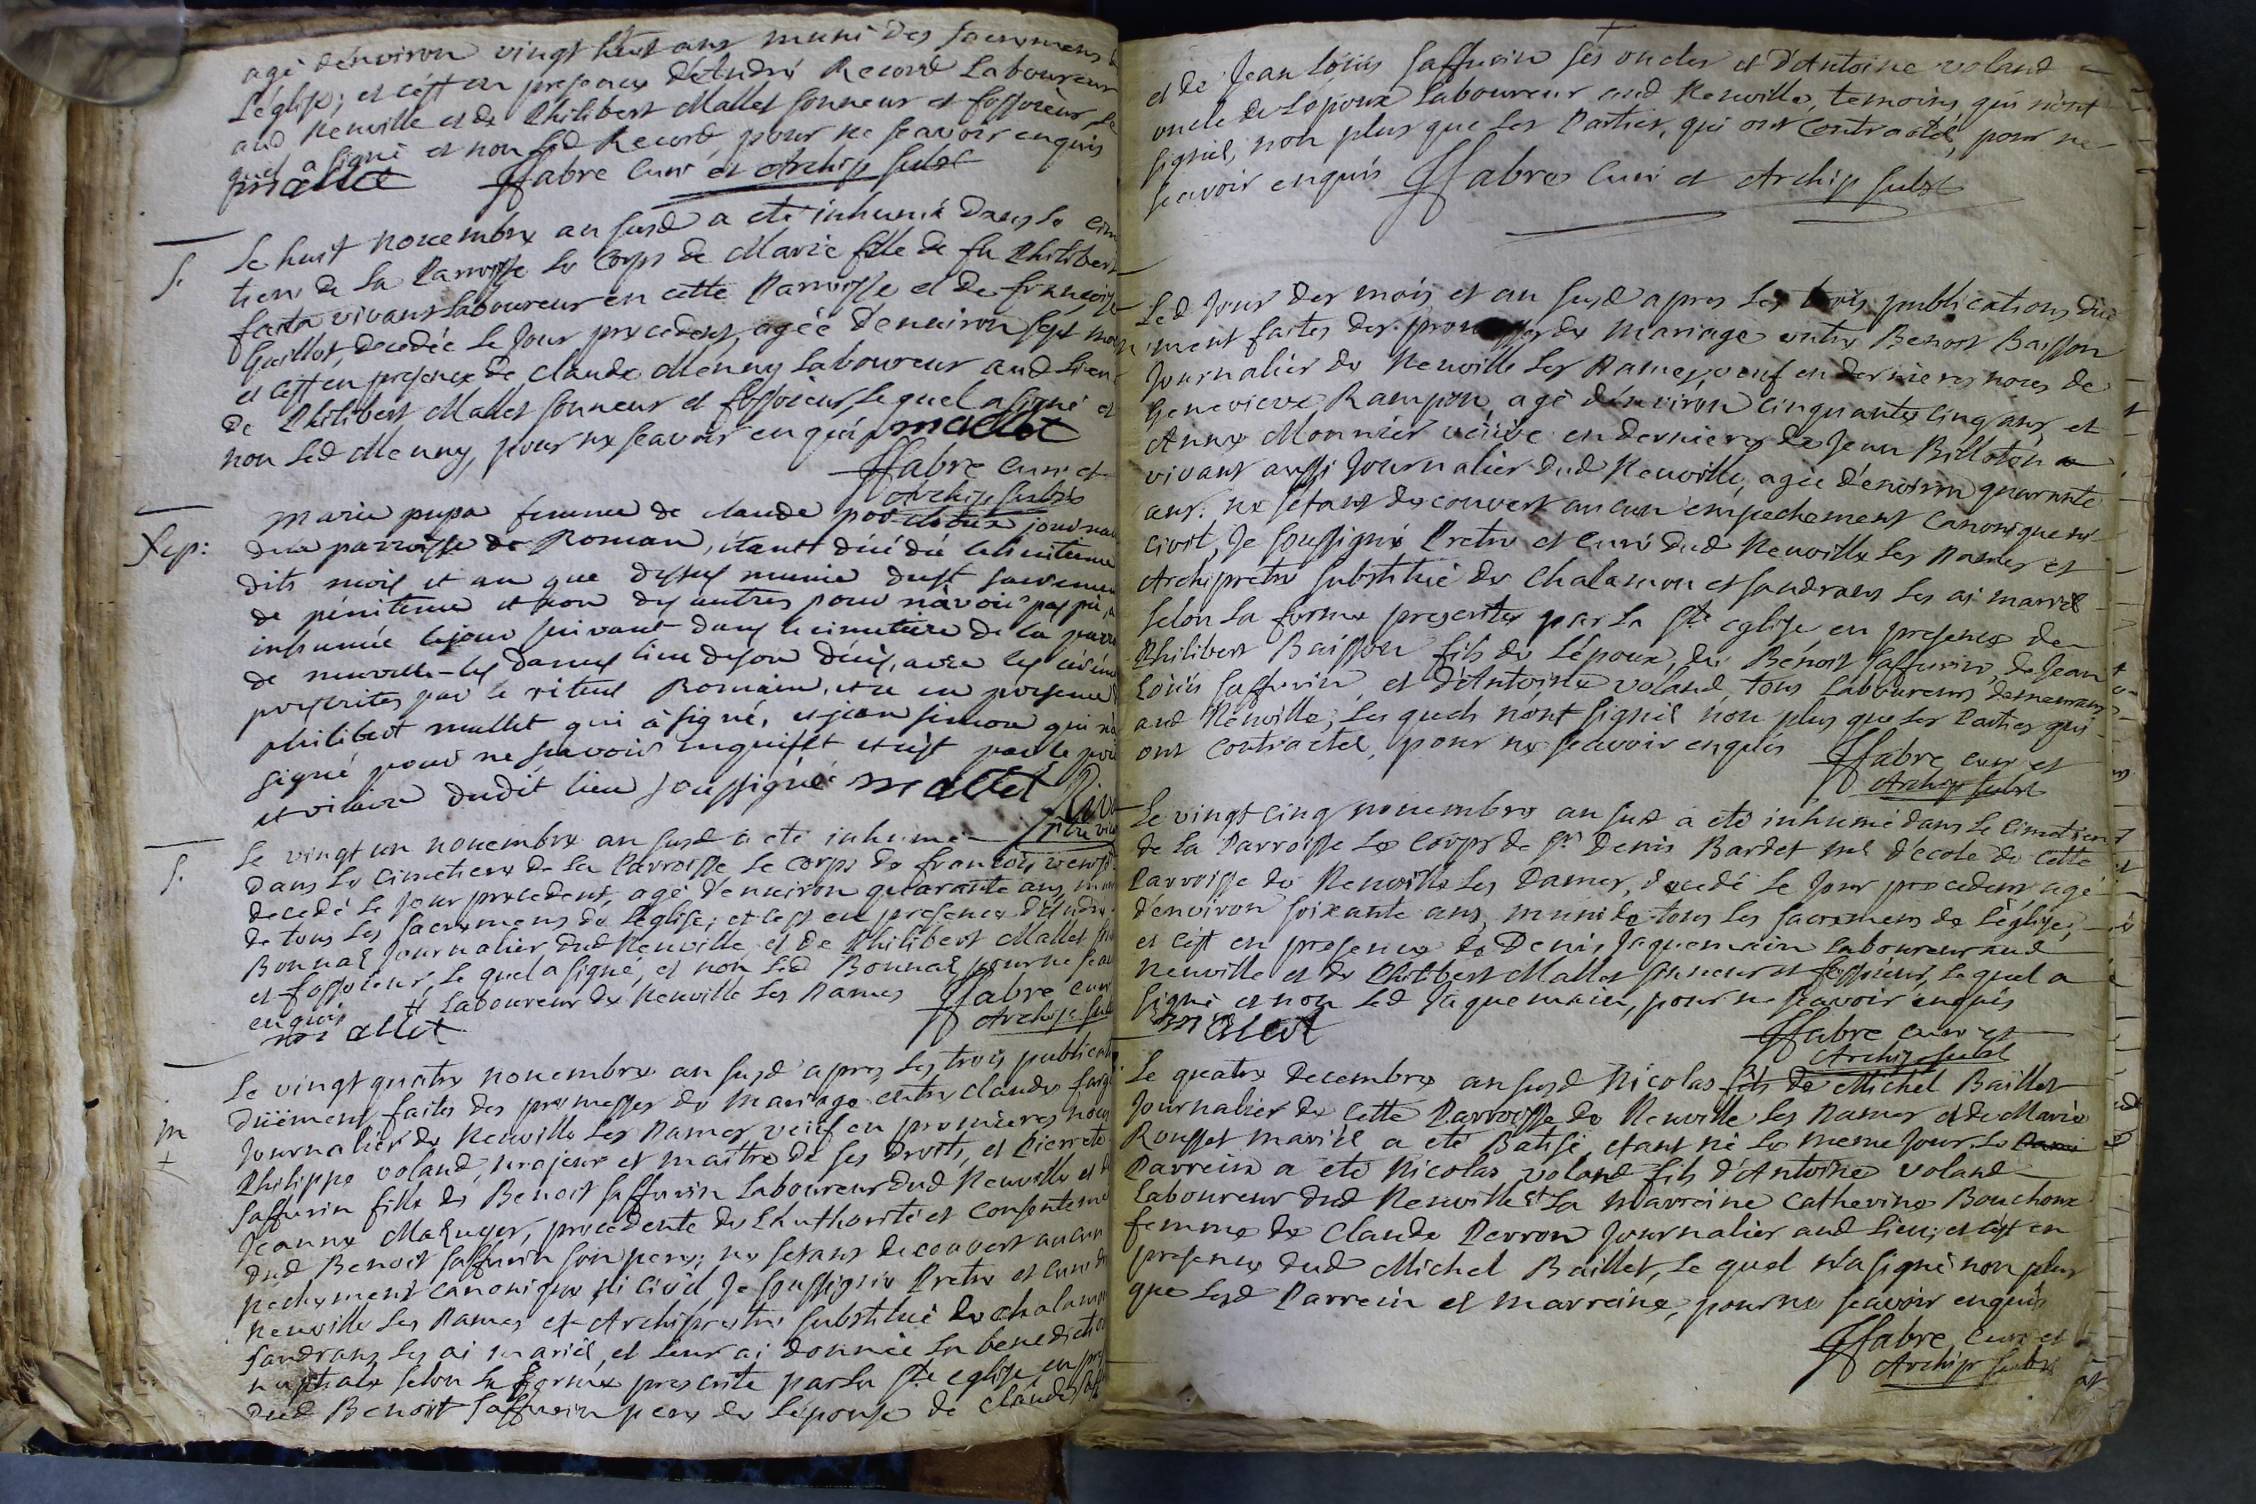 agé d'environ vingt huit ans muni des sacremens
L'église; et c'est en presence d'André Record Laboureur
aud Neuville et de Philibert Mallet sonneur et fossoieur, le
quel a signé et non led Record, pour ne scavoir enquis
mallet ffabre Curé et Archip subst
S. Le huit novembre an susd a eté inhumé dans le cim
tiere de la Parroisse le corps de Marie fille de fu Philibert
vivant Laboureur en cette Parroisse et de françoise
Guillot, decedée le Jour precedent, agée d'environ sept
et c'est en presence de Claude Menny Laboureur aud Lieu
de Philibert Mallet sonneur et fossoieur, Lequel a signé et
non led Menny, pour ne scavoir enquis mallet
ffabre Curé et
Archip subst
Marie pupa femme de claude journal
Sep: de la parroisse de Romans, étant décédée le huitieme
dits mois et an que dessus munie du st sacremen
de pénitence et non des autres pour n'avoir pas pu, a
inhumée le jour suivant dans le cimetiere de la parr
de neuville-les dames lieu de son décès, avec les cérém
prescrites par le rituel Romain, et ce en presence
philibert mallet qui à signé, et jean simon qui n'a
signé pour ne scavoir enquis et c'est par le
et vicaire dudit lieu soussigné mallet
S. Le vingt un novembre an susd a eté inhumé
Dans le Cimetiere de la Parroisse le corps de françois
decedé le Jour precedent, agé d'environ quarante ans, muni
de tous les sacremens de L'église; et c'est en presence d'André
Bonnaz Journalier dud Neuville et de Philibert Mallet
et fossoieur, Le quel a signé, et non led Bonnaz pour ne sca
enquis # Laboureur de Neuville les Dames ffabre Curé
mallet Archip subst
Le vingt quatre novembre an susd apres les trois publicat
m + Düement faites des promesses de Mariage entre Claude
Journalier de Neuville les Dames veuf en premières noces
Philippe voland, majeur et maître de ses Droits, et Pierrete
Saffurin fille de Benoit Saffurin Laboureur dud Neuville et de
Jeanne Mazuyer, procedente de L'Authorité et Consenteme
dud Benoit Saffurin son pere; ne s'etant decouvert aucun
pechement canonique ni civil, Je soussigné Pretre et Curé de
Neuville les Dames et Archipretre substitué de chalamon
sandrans les ai mariés, et leur ai donnée la benediction
nuptiale selon la forme prescrite par la ste eglise, en pre
dud Benoit Saffurin pere de L'épouse de Claude
et de Jean Loüis Saffurin ses oncles et d'Antoine voland
oncle de L'époux Laboureur aud Neuville, temoins qui n'ont
signés, non plus que les Parties, qui ont contracté, pour ne
scavoir enquis ffabre Curé et Archip subst
Led Jour des mois et an susd apres les trois publications düe
ment faites des promesses de Mariage entre Benoit Baisson
Journalier de Neuville les Dames, veuf en dernieres noces de
Genevieve Rampon, agé d'environ cinquante cinq ans, et
Anne Monnier veüve en dernieres de Jean Billoton
vivant aussi Journalier dud Neuville, agée d'environ quarante
ans. ne s'etant decouvert aucun empechement canonique ni
Civil, Je soussigné Pretre et Curé dud Neuville les Dames et
Archipretre substitué de Chalamon et sandrans les ai mariés
selon la forme prescrite par la ste eglise en presence de
Philibert Baisson fils de L'époux, de Benoit Saffurin, de Jean
Loüis Saffurin, et d'Antoine voland, tous Laboureurs demeurans
aud Neuville; Les quels n'ont signés non plus que les Parties qui
ont contractés, pour ne scavoir enquis ffabre curé et
Archip subst
Le vingt cinq novembre an susd a eté inhumé dans le Cimetiere
de la Parroisse Le Corps de sr Denis Bardet me d'école de Cette
Parroisse de Neuville les Dames, decedé le Jour precedent agé
d'environ soixante ans, muni de tous les sacremens de L'église;
et c'est en presence de Denis Jaquemain Laboureur aud
Neuville et de Philibert Mallet sonneur et fossoieur, Lequel a
signé et non led Jaquemain, pour ne scavoir enquis
mallet ffabre curé et
Archip subst
Le quatre Decembre an susd Nicolas fils de Michel Baillet
Journalier de Cette Parroisse de Neuville les Dames et de Marie
Rousset mariés a eté Batisé etant né le meme Jour. Le
Parrein a eté Nicolas voland fils d'Antoine voland
Laboureur dud Neuville et La Marreine Catherine Bouchoux
femme de Claude Perron Journalier aud Lieu; et c'est en
presence dud Michel Baillet, Le quel n'a signé non plus
que lesd Parrein et Marreine, pour ne scavoir enquis
ffabre Curé et
Archip subst